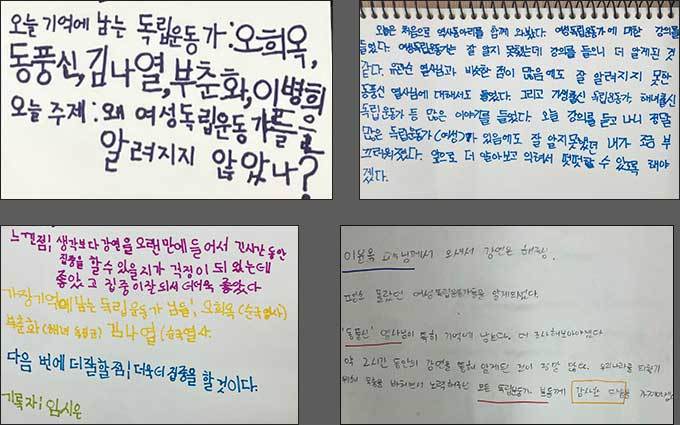 오늘 기억에 남는 독립운동가 : 오희옥,
동풍신, 김나열, 부춘화, 이병희
오늘 주제 : 왜 여성독립운동가들을
알려지지 않았나?
오늘은 처음으로 역사동아리를 함께 와봤다. 여성독립운동가에 대한 강의를
들었다. 여성독립운동가는 잘 알지 못했는데 강의를 들으니 더 알게된 것
같다. 유관순 열사님과 비슷한 점이 많음에도 잘 알려지지 못한
동풍신 열사님에 대해서도 들었다. 그리고 기생출신 독립운동가, 해녀출신
독립운동가 등 많은 이야기를 들었다. 오늘 강의를 듣고 나니 정말
많은 독립운동가(여성)가 있음에도 잘 알지못했던 내가 조금 부
끄러워졌다. 앞으로 더 알아보고 의해서 떳떳할 수 있도록 해야
겠다.
느낀점; 생각보다 강연을 오랜만에 들어서 긴시간 동안
집중을 할 수 있을지가 걱정이 되었는데
좋았고 집중이 잘 되서 더더욱 좋았다
가장기억에 남는 독립운동가 남들, 오희옥 (순국열사)
부춘화 (해녀 독립군) 김나열 (순국열사
다음 번에 더 잘할 점; 더욱더 집중을 할 것이다.
기록자; 임시은
이윤옥 교수님께서 오셔서 강연을 해주심.
평소 몰랐던 여성독립운동가들을 알게되었다.
'동풍신' 열사님이 특히 기억에 남는다. 더 조사해보아야겠다
약 2시간 동안의 강연을 통해 알게된 것이 정말 많다. 우리나라를 되찾기
위해 목숨을 바치면서 노력해주신 모든 독립운동가 분들께 감사한 마음을